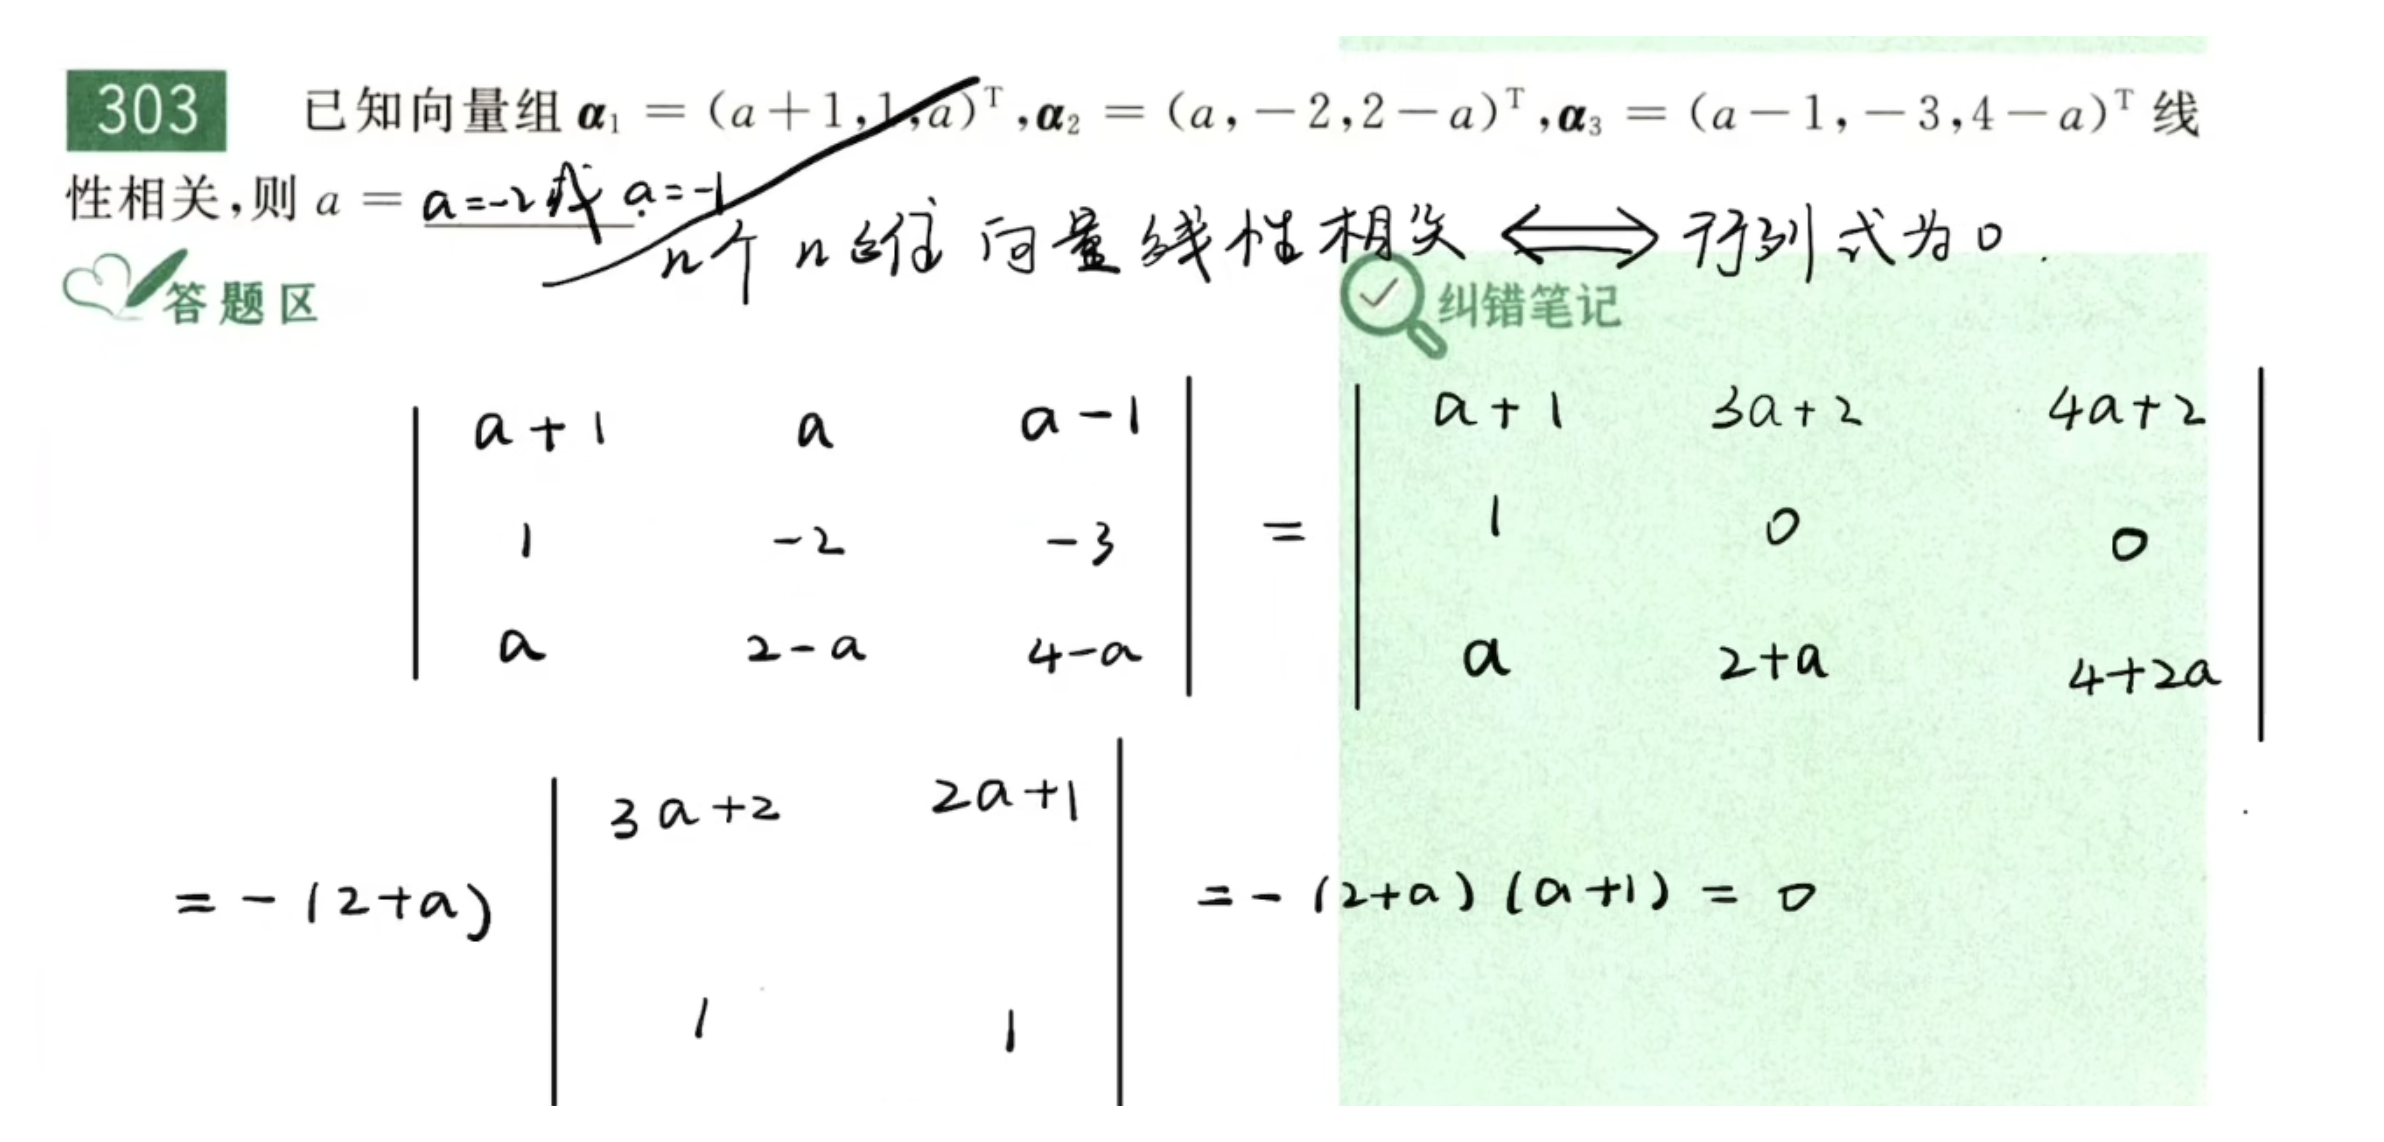 303 已知向量组 α₁ = (a+1,1,a)ᵀ,α₂ = (a,−2,2−a)ᵀ,α₃ = (a−1,−3,4−a)ᵀ 线
性相关,则 a = a=-2或 a=-1
n个 n维 向量线性相关 ⟺ 行列式为0.
答题区 纠错笔记
| a+1 a a-1 | | a+1 3a+2 4a+2 |
| 1 -2 -3 | = | 1 0 0 |
| a 2-a 4-a | | a 2+a 4+2a |
| 3a+2 2a+1 |
= -(2+a) = -(2+a)(a+1) = 0
| 1 1 |